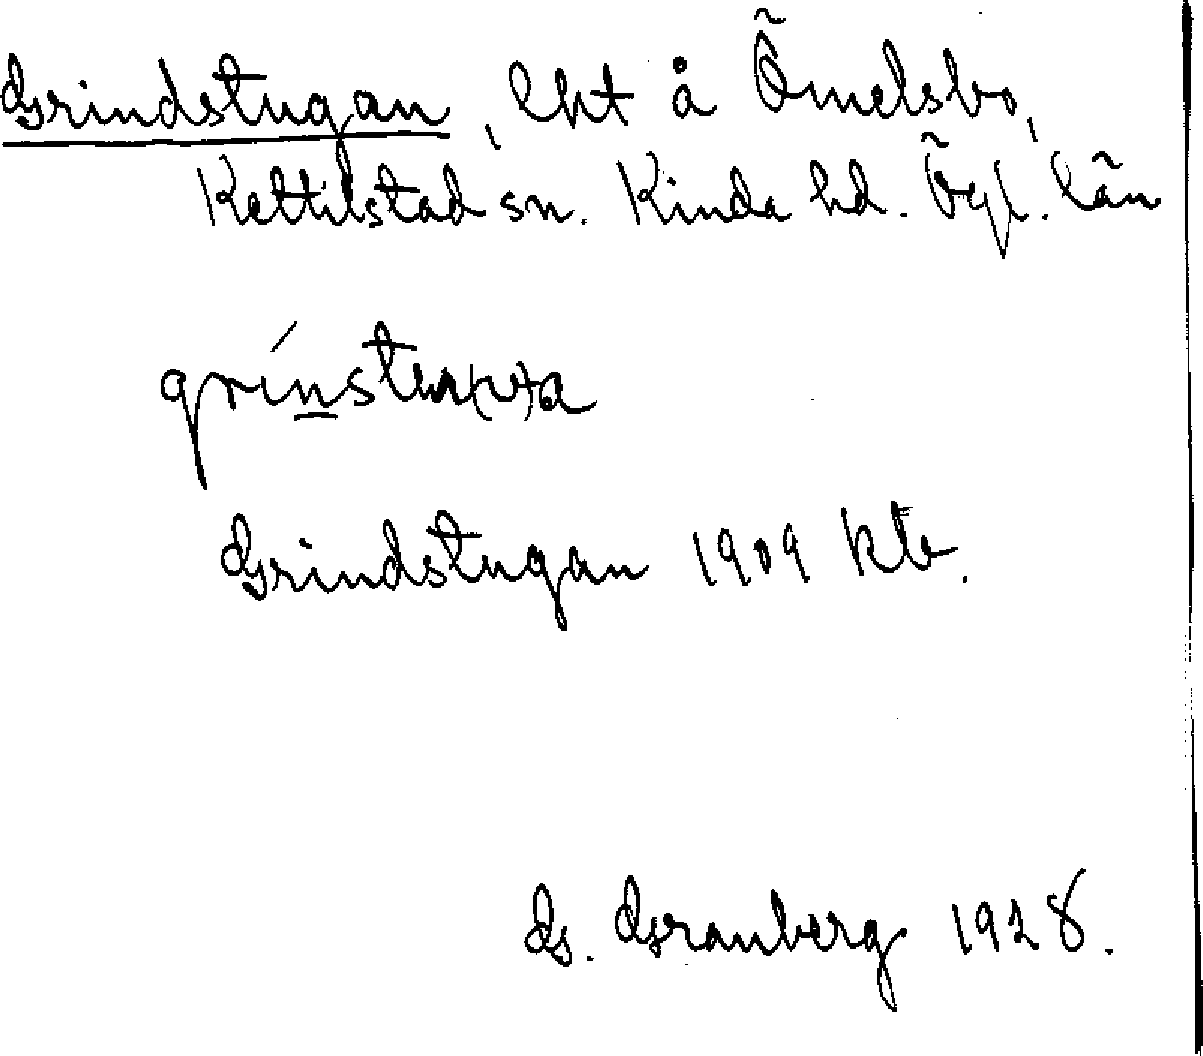 Grindstugan, lht å Ömelsbo,
Kettilstad sn. Kinda hd. Ögl. län
Grindstugan 1909 ktb.
G. Granberg 1928.